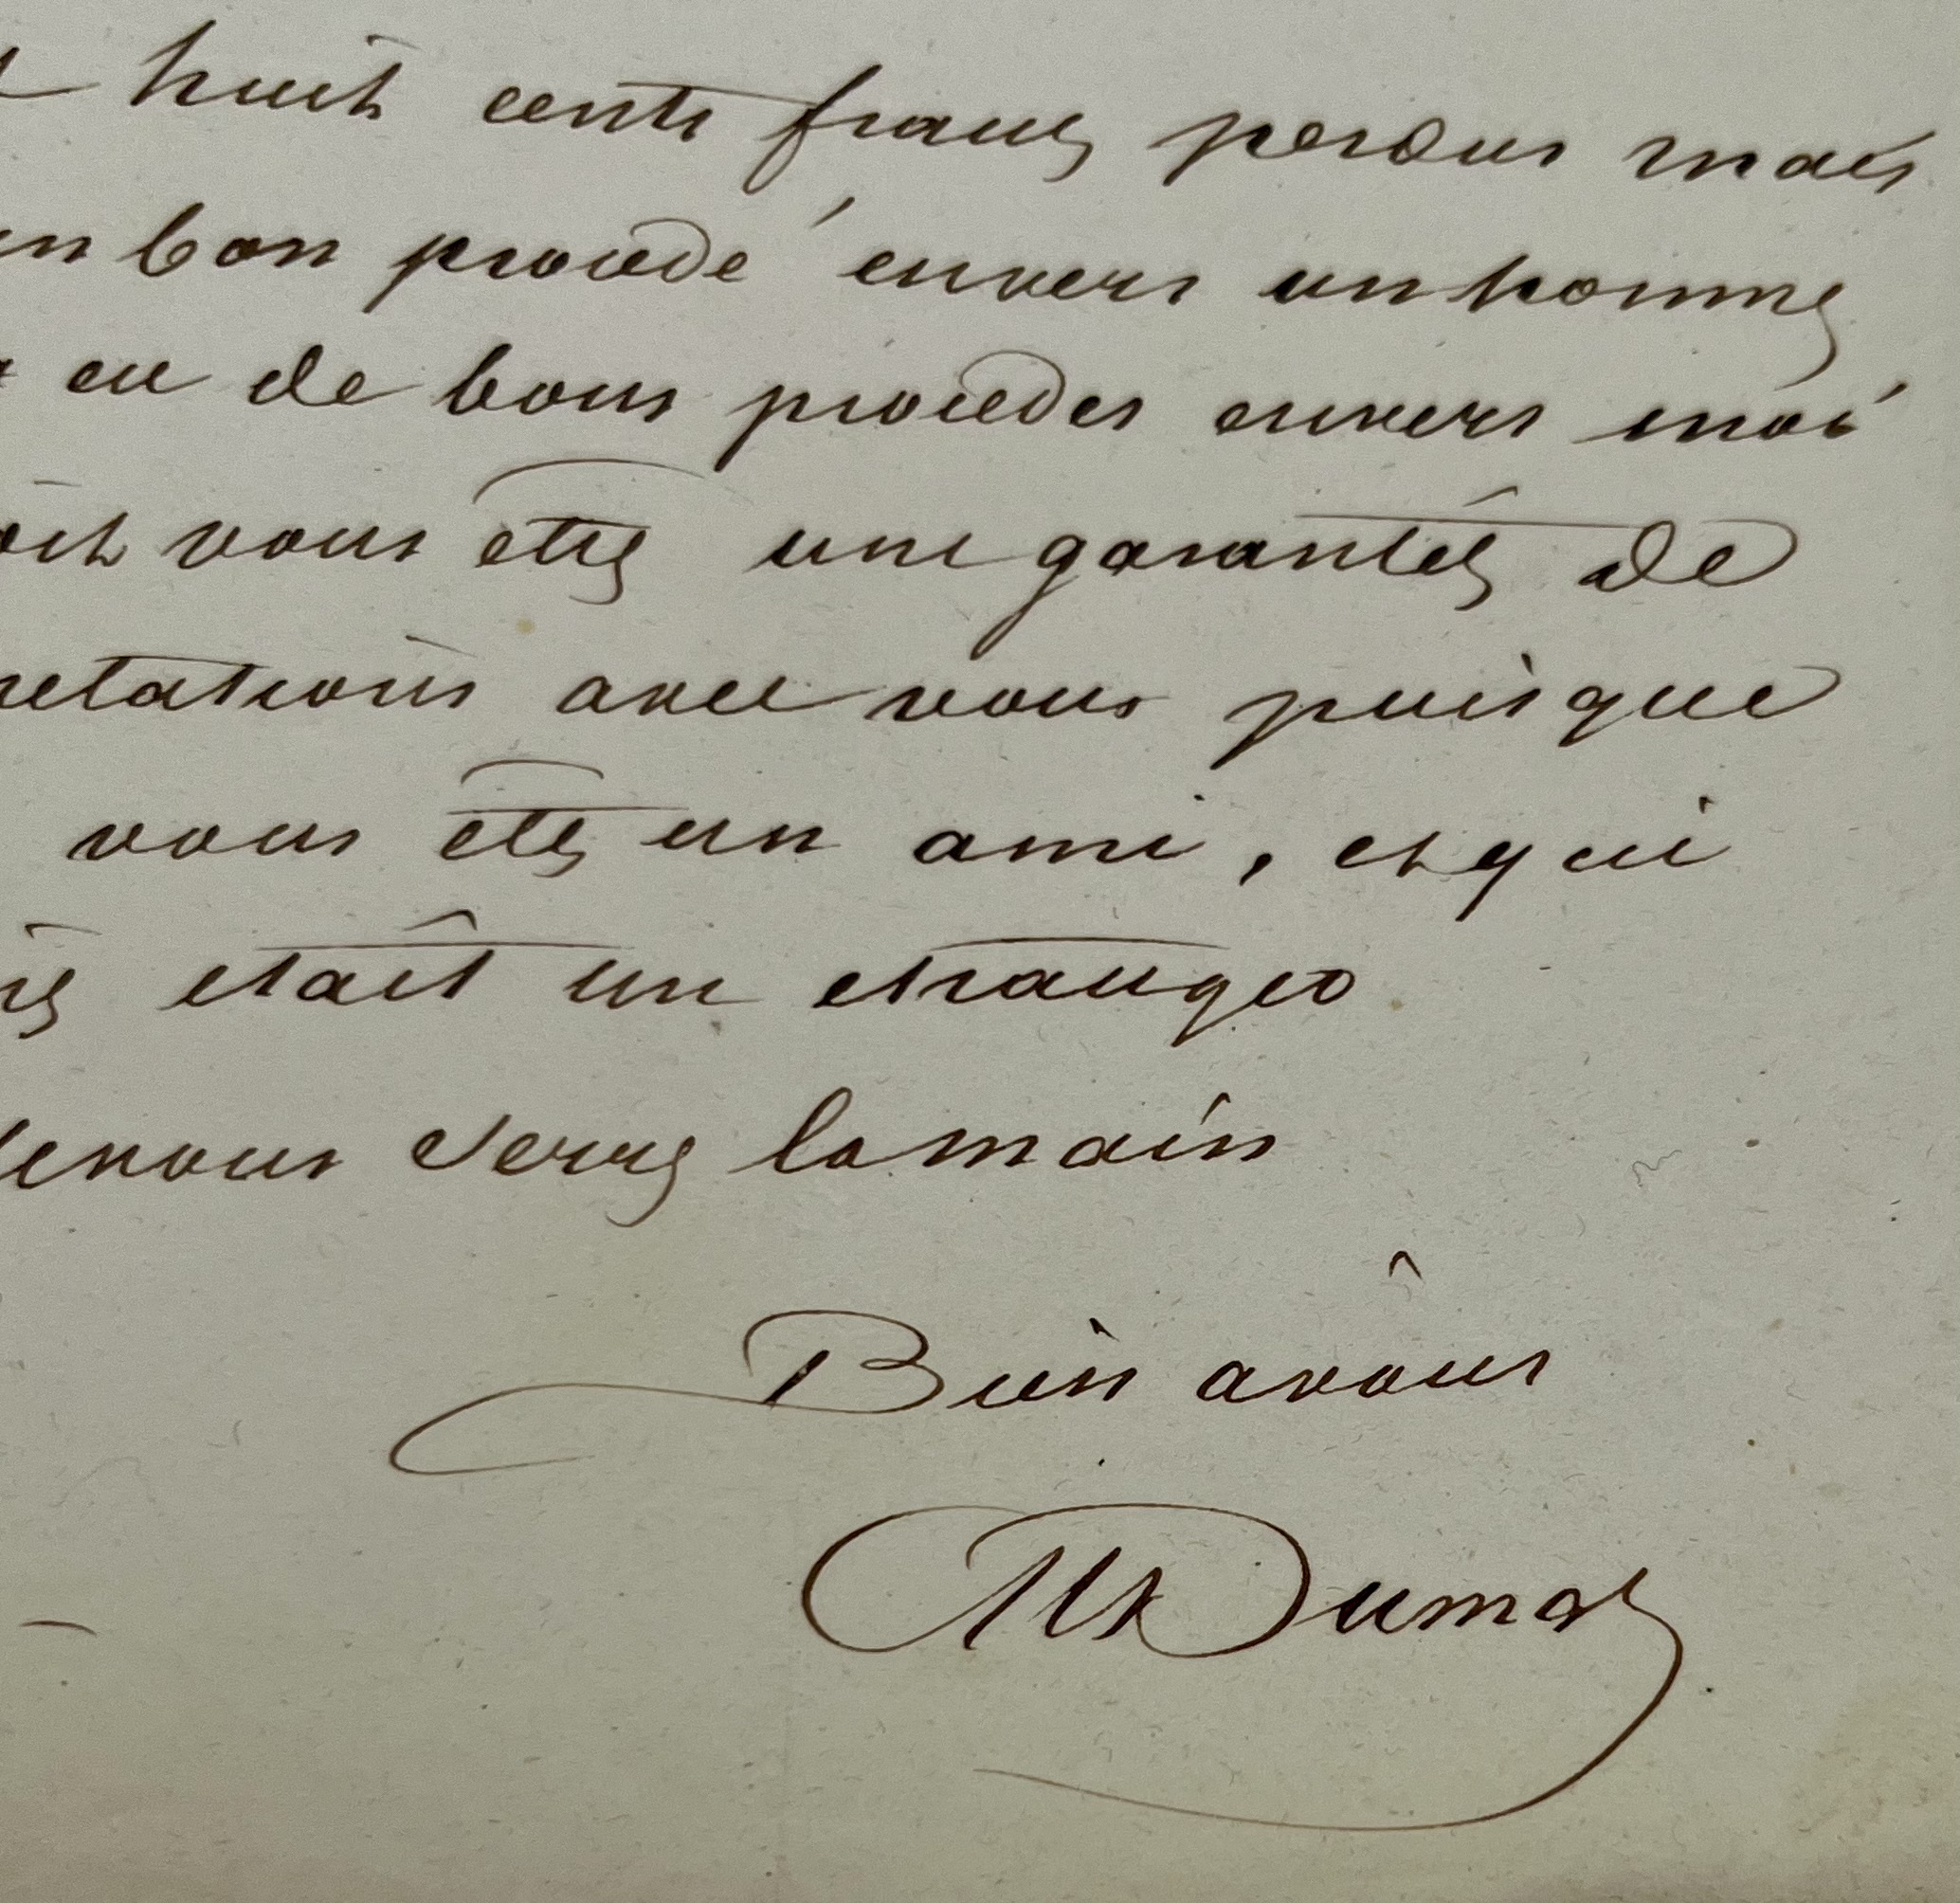 huit cents francs perdus mais
bon procédé envers un homme
eu de bons procedes envers moi
vous être une garantie de
relations avec vous puisque
vous êtes un ami, et qui
était un etranger
vous serre la main
Bien a vous
Alex Dumas